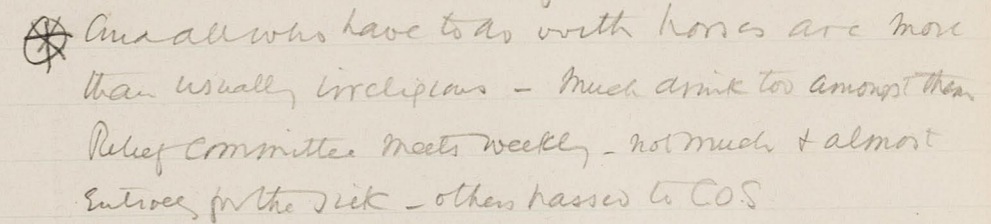 And all who have to do with horses are more
than usually irreligious - Much drink too amongst them
Relief Committee meets weekly - not much & almost
Entirely for the sick - others passed to COS